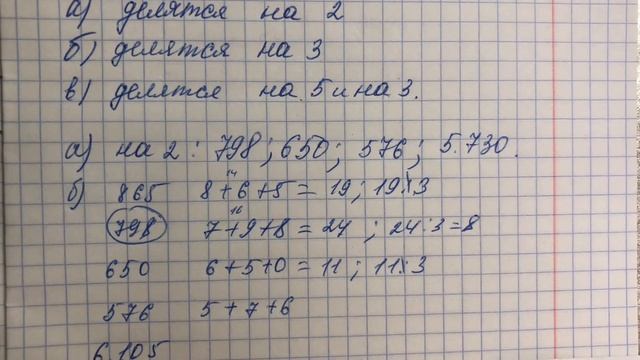 а) делятся на 2
б) делятся на 3
в) делятся на 5 и на 3.
а) на 2 : 798; 650; 576; 5.730.
б) 865 8+6+5=19; 19⋮̸3
14
798 7+9+8=24; 24:3=8
16
650 6+5+0=11; 11⋮̸3
576 5+7+6
6.105